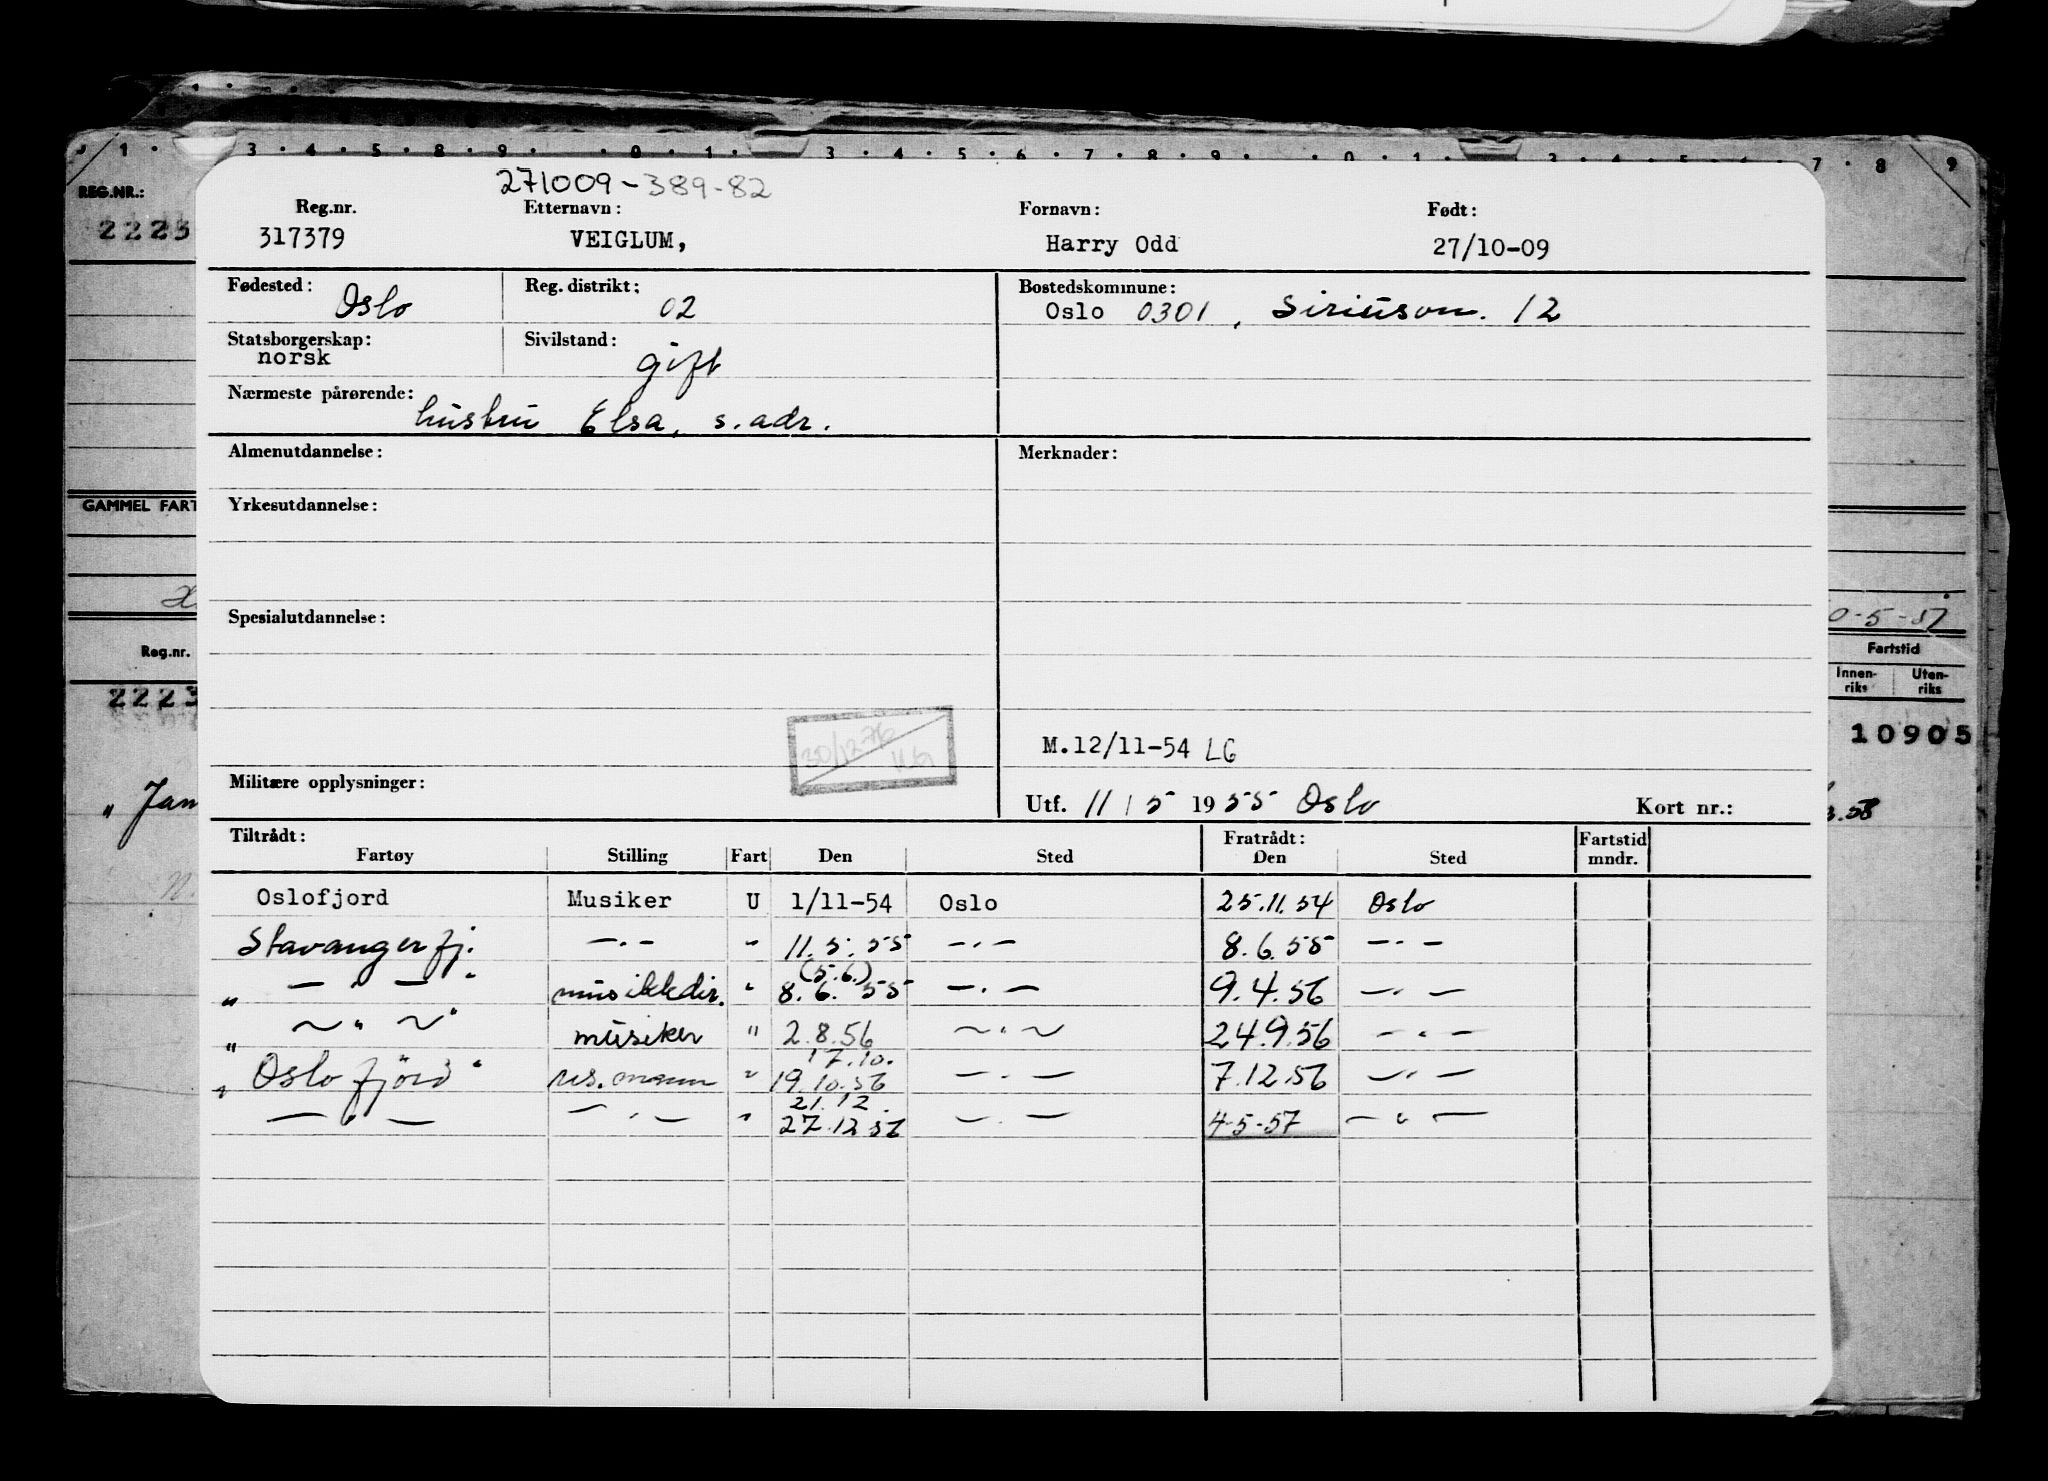 1 · 3 · 4 · 5 · 8 · 9 · 0 · 1 · 3 · 4 · 5 · 6 · 7 · 8 · 9 · 0 · 1 · 3 · 4 · 5 · 6 · 7 · 8 9
REG.NR.:
2223
271009-389-82
Reg.nr. Etternavn: Fornavn: Født:
317379 VEIGLUM, Harry Odd 27/10-09
Fødested: Oslo Reg. distrikt: 02 Bostedskommune:
Oslo 0301, Siriusvn. 12
Statsborgerskap: norsk Sivilstand: gift
Nærmeste pårørende:
hustru Elsa, s. adr.
Almenutdannelse: Merknader:
GAMMEL FART
Yrkesutdannelse:
0-5-57
Spesialutdannelse:
Reg.nr. Fartstid
Innen-riks Uten-riks
2223
30/12 76
10905
M.12/11-54 LG
Militære opplysninger:
Utf. 11/5 1955 Oslo Kort nr.:
" Jan .58
Tiltrådt: Fratrådt: Fartstid mndr.
Fartøy Stilling Fart Den Sted Den Sted
Oslofjord Musiker U 1/11-54 Oslo 25.11.54 Oslo
Stavangerfj. —.— " 11.5.55 —.— 8.6.55 —.—
(5.6.)
" — " — " musikkdir. " 8.6.55 —.— 9.4.56 —.—
" ~ " ~ " musiker " 2.8.56 ~.~ 24.9.56 —.—
17.10.
" Oslofjord " res.mann " 19.10.56 —.— 7.12.56 —.—
21.12.
— " — —.— " 27.12.56 —.— 4-5-57 — " —